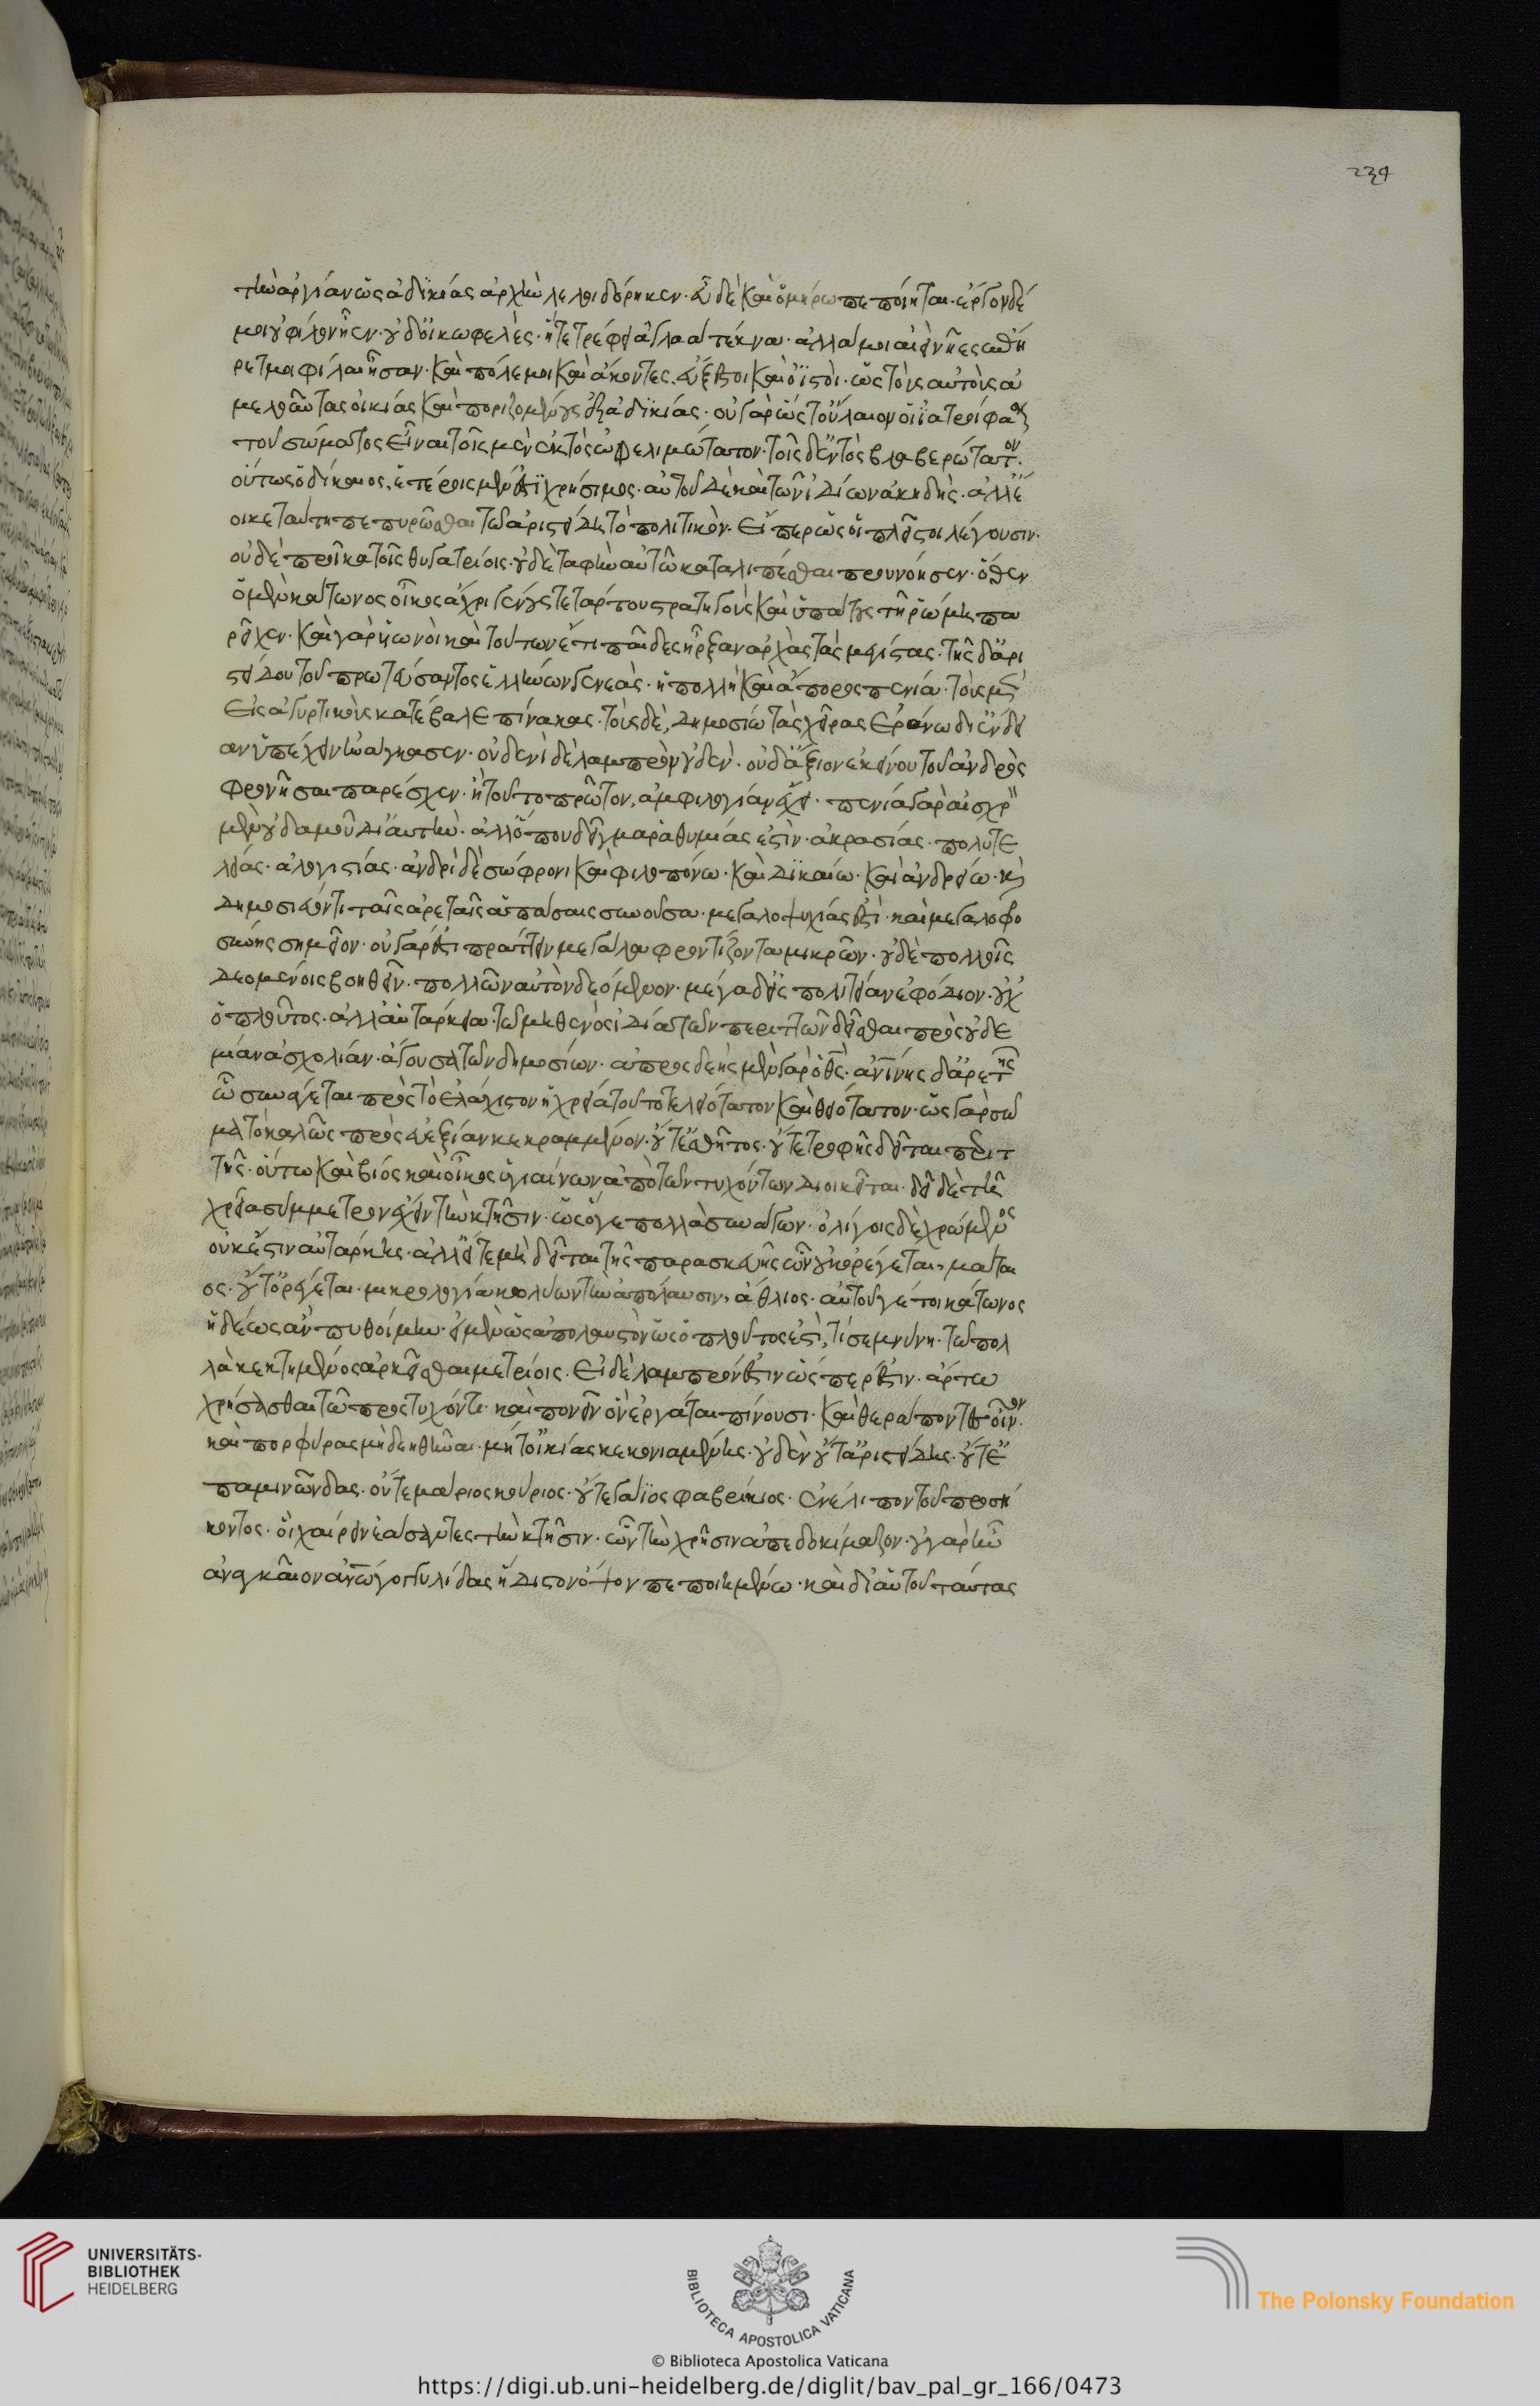 234
τὴν ἀργίαν ὡς ἀδικίας ἀρχὴν λελοιδόρηκεν. εὖ δὲ καὶ ὁμήρω πεποίηται. ἔργον δέ
μοι οὐ φίλον ἦεν. οὐδ' οἰκωφελὴς. ἥτε τρέφει ἀγλαὰ τέκνα. ἀλλά μοι αἰεὶ νῆες ἐπή
ρετμοι φίλαι ἦσαν. καὶ πόλεμοι καὶ ἄκοντες εὔξεστοι καὶ ὀϊστοὶ. ὡς τοὺς αὐτοὺς ἀ
μελοῦντας οἰκίας καὶ ποριζομένους ἐξ ἀδικίας. οὐ γὰρ ὡς τοὔλαιον οἱ ἰατροί φασι
τοῦ σώματος εἶναι τοῖς μὲν ἐκτὸς ὠφελιμώτατον. τοῖς δ' ἐντὸς βλαβερώτατον.
οὕτως ὁ δίκαιος, ἑτέροις μέν ἐστι χρήσιμος. αὑτοῦ δὲ καὶ τῶν ἰδίων ἀκηδής. ἀλλ' ἔ
οικε ταύτη πεπηρῶσθαι τῶ ἀριστείδη τὸ πολιτικὸν. εἴπερ ὡς οἱ πλεῖστοι λέγουσιν.
οὐδὲ προῖκα τοῖς θυγατρίοις. οὐδὲ ταφὴν αὑτῶ καταλιπέσθαι προυνόησεν. ὅθεν
ὁ μὲν κάτωνος οἶκος ἄχρι γένους τετάρτου στρατηγοὺς καὶ ὑπάτους τῆ ῥώμη πα
ρεῖχεν. καὶ γὰρ υἱωνοὶ καὶ τούτων ἔτι παῖδες ἦρξαν ἀρχὰς τὰς μεγίστας. τῆς δ' ἀρι
στείδου τοῦ πρωτεύσαντος ἑλλήνων γενεὰς. ἡ πολλὴ καὶ ἄπορος πενία. τοὺς μὲν
εἰς ἀγυρτικοὺς κατέβαλε πίνακας. τοὺς δὲ, δημοσίω τὰς χεῖρας ἐράνω δι' ἔνδει
αν ὑπέχειν ἠνάγκασεν. οὐδενὶ δὲ λαμπρὸν οὐδὲν. οὐδ' ἄξιον ἐκείνου τοῦ ἀνδρὸς
φρονῆσαι παρέσχεν. ἢ τοῦτο πρῶτον, ἀμφιλογίαν ἔχει. πενία γὰρ αἰσχρὸν
μὲν οὐδαμοῦ δι' αὑτὴν. ἀλλ' ὅπου δεῖγμα ῥαθυμίας ἐστὶν. ἀκρασίας. πολυτε
λείας. ἀλογιστίας. ἀνδρὶ δὲ σώφρονι καὶ φιλοπόνω. καὶ δικαίω. καὶ ἀνδρείω. καὶ
δημοσιεύοντι ταῖς ἀρεταῖς ἁπάσαις συνοῦσα. μεγαλοψυχίας ἐστὶ καὶ μεγαλοφρο
σύνης σημεῖον. οὐ γὰρ ἔστι πράττειν μεγάλα φροντίζοντα μικρῶν. οὐδὲ πολλοῖς
δεομένοις βοηθεῖν. πολλῶν αὐτὸν δεόμενον. μέγα δ' εἰς πολιτείαν ἐφόδιον. οὐχ
ὁ πλοῦτος. ἀλλ' αὐτάρκεια. τῶ μηθενὸς ἰδία τῶν περιττῶν δεῖσθαι πρὸς οὐδε
μίαν ἀσχολίαν. ἄγουσα τῶν δημοσίων. ἀπροσδεὴς μὲν γὰρ ὁ θεὸς. ἀνθρωπίνης δ' ἀρετῆς
ὧ συνάγεται πρὸς τὸ ἐλάχιστον ἡ χρεία τοῦτο τελεώτατον καὶ θειότατον. ὡς γὰρ σῶ
μα τὸ καλῶς πρὸς εὐεξίαν κεκραμμένον. οὔτ' ἐσθῆτος. οὔτε τροφῆς δεῖται περιτ
τῆς. οὕτω καὶ βίος καὶ οἶκος ὑγιαίνων ἀπὸ τῶν τυχόντων διοικεῖται. δεῖ δὲ τῆ
χρεία σύμμετρον ἔχειν τὴν κτῆσιν. ὡς ὅγε πολλὰ συνάγων. ὀλίγοις δὲ χρώμενος
οὐκ ἔστιν αὐτάρκης. ἀλλ' εἴτε μὴ δεῖται τῆς παρασκευῆς ὧν οὐκ ὀρέγεται, μάται
ος. οὔτ' ὀρέγεται. μικρολογία κωλύων τὴν ἀπόλαυσιν, ἄθλιος. αὐτοῦ γέ τοι κάτωνος
ἡδέως ἂν πυθοίμην. εἰ μὲν ὡς ἀπολαυστὸν ὡς ὁ πλοῦτός ἐστι, τί σεμνύνη. τῶ πολ
λὰ κεκτημένος ἀρκεῖσθαι μετρίοις. εἰ δὲ λαμπρόν ἐστιν ὥσπερ ἐστὶν. ἄρτω
χρῆσθαι τῶ προστυχόντι. καὶ πονεῖν ὃν ἐργάται πίνουσι. καὶ θεράποντες οἶνον.
καὶ πορφύρας μὴ δεηθῆναι. μήτ' οἰκίας κεκονιαμένης. οὐδὲν οὔτ' ἀριστείδης. οὔτ' ἐ
παμινώνδας. οὔτε μάριος κούριος. οὔτε γάϊος φαβρίκιος. ἐνέλιπον τοῦ προσή
κοντος. οἱ χαίρειν ἐάσαντες τὴν κτῆσιν. ὧν τὴν χρῆσιν ἀπεδοκίμαζον. οὐ γὰρ ἦν
ἀναγκαῖον ἀνθρώπω γογγυλίδας ἥδιστον ὄψον πεποιημένω. καὶ δι' αὑτοῦ ταύτας
UNIVERSITÄTS-
BIBLIOTHEK
HEIDELBERG
BIBLIOTECA APOSTOLICA VATICANA
The Polonsky Foundation
© Biblioteca Apostolica Vaticana
https://digi.ub.uni-heidelberg.de/diglit/bav_pal_gr_166/0473